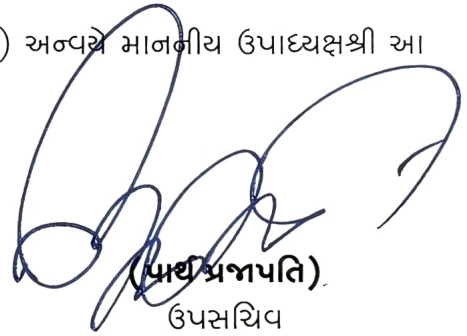 ) અન્વયે માનનીય ઉપાધ્યક્ષશ્રી આ
(પાર્થ પ્રજાપતિ)
ઉપસચિવ